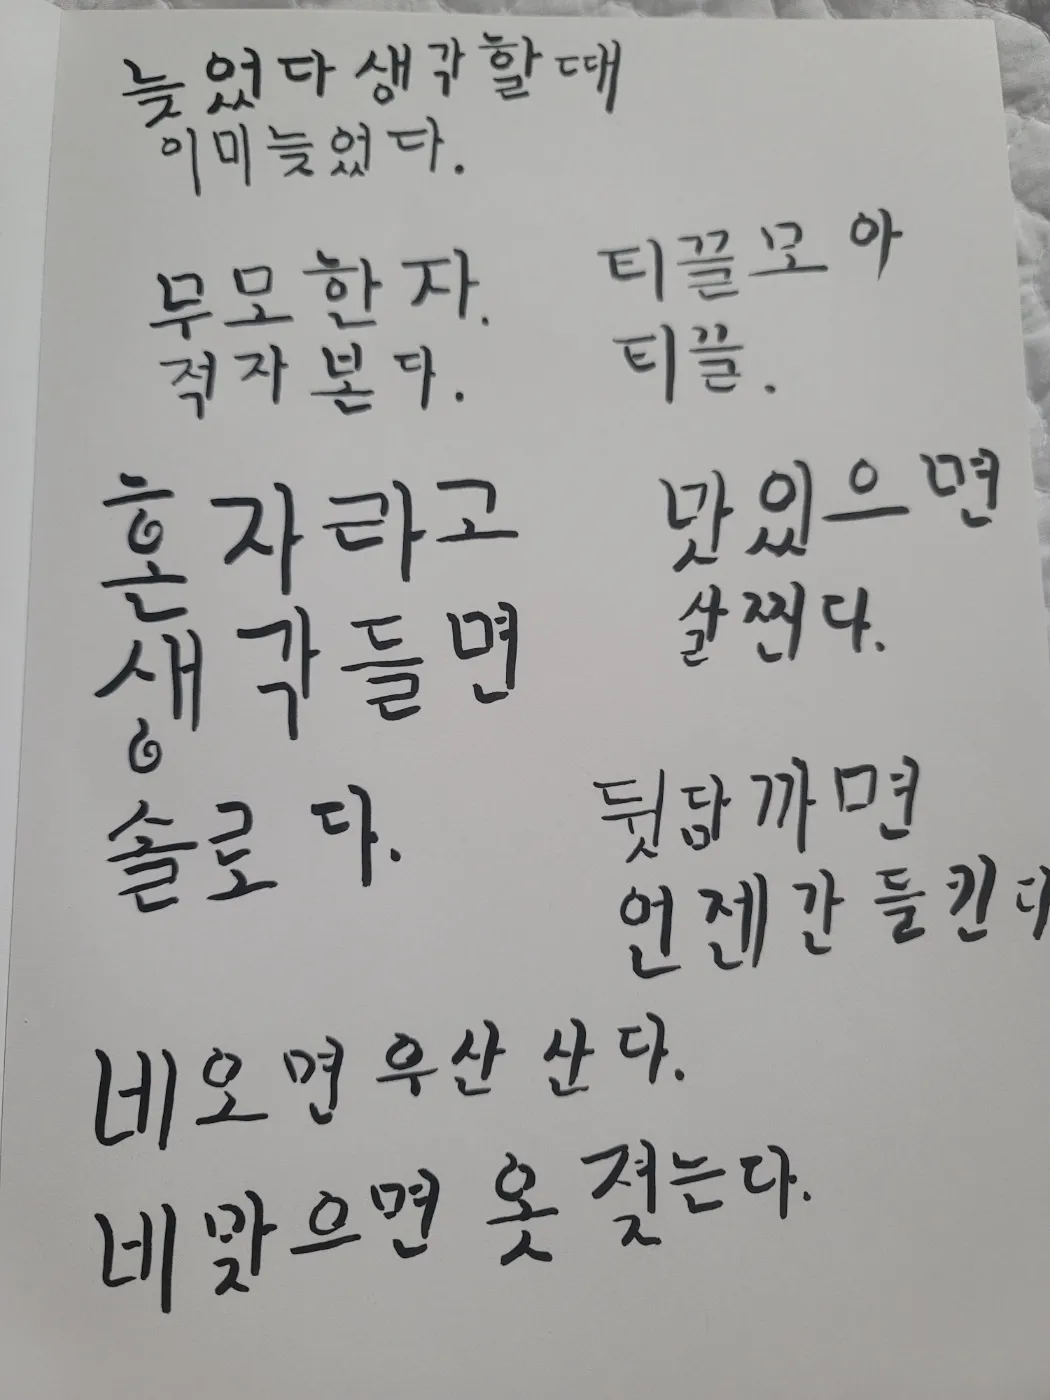 늦었다 생각할 때
이미 늦었다.
무모한 자.
적자 본다.
티끌 모아
티끌.
혼자라고
생각들면
솔로다.
맛있으면
살찐다.
뒷담까면
언젠간 들킨다
네오면 우산 산다.
네맞으면 옷 젖는다.